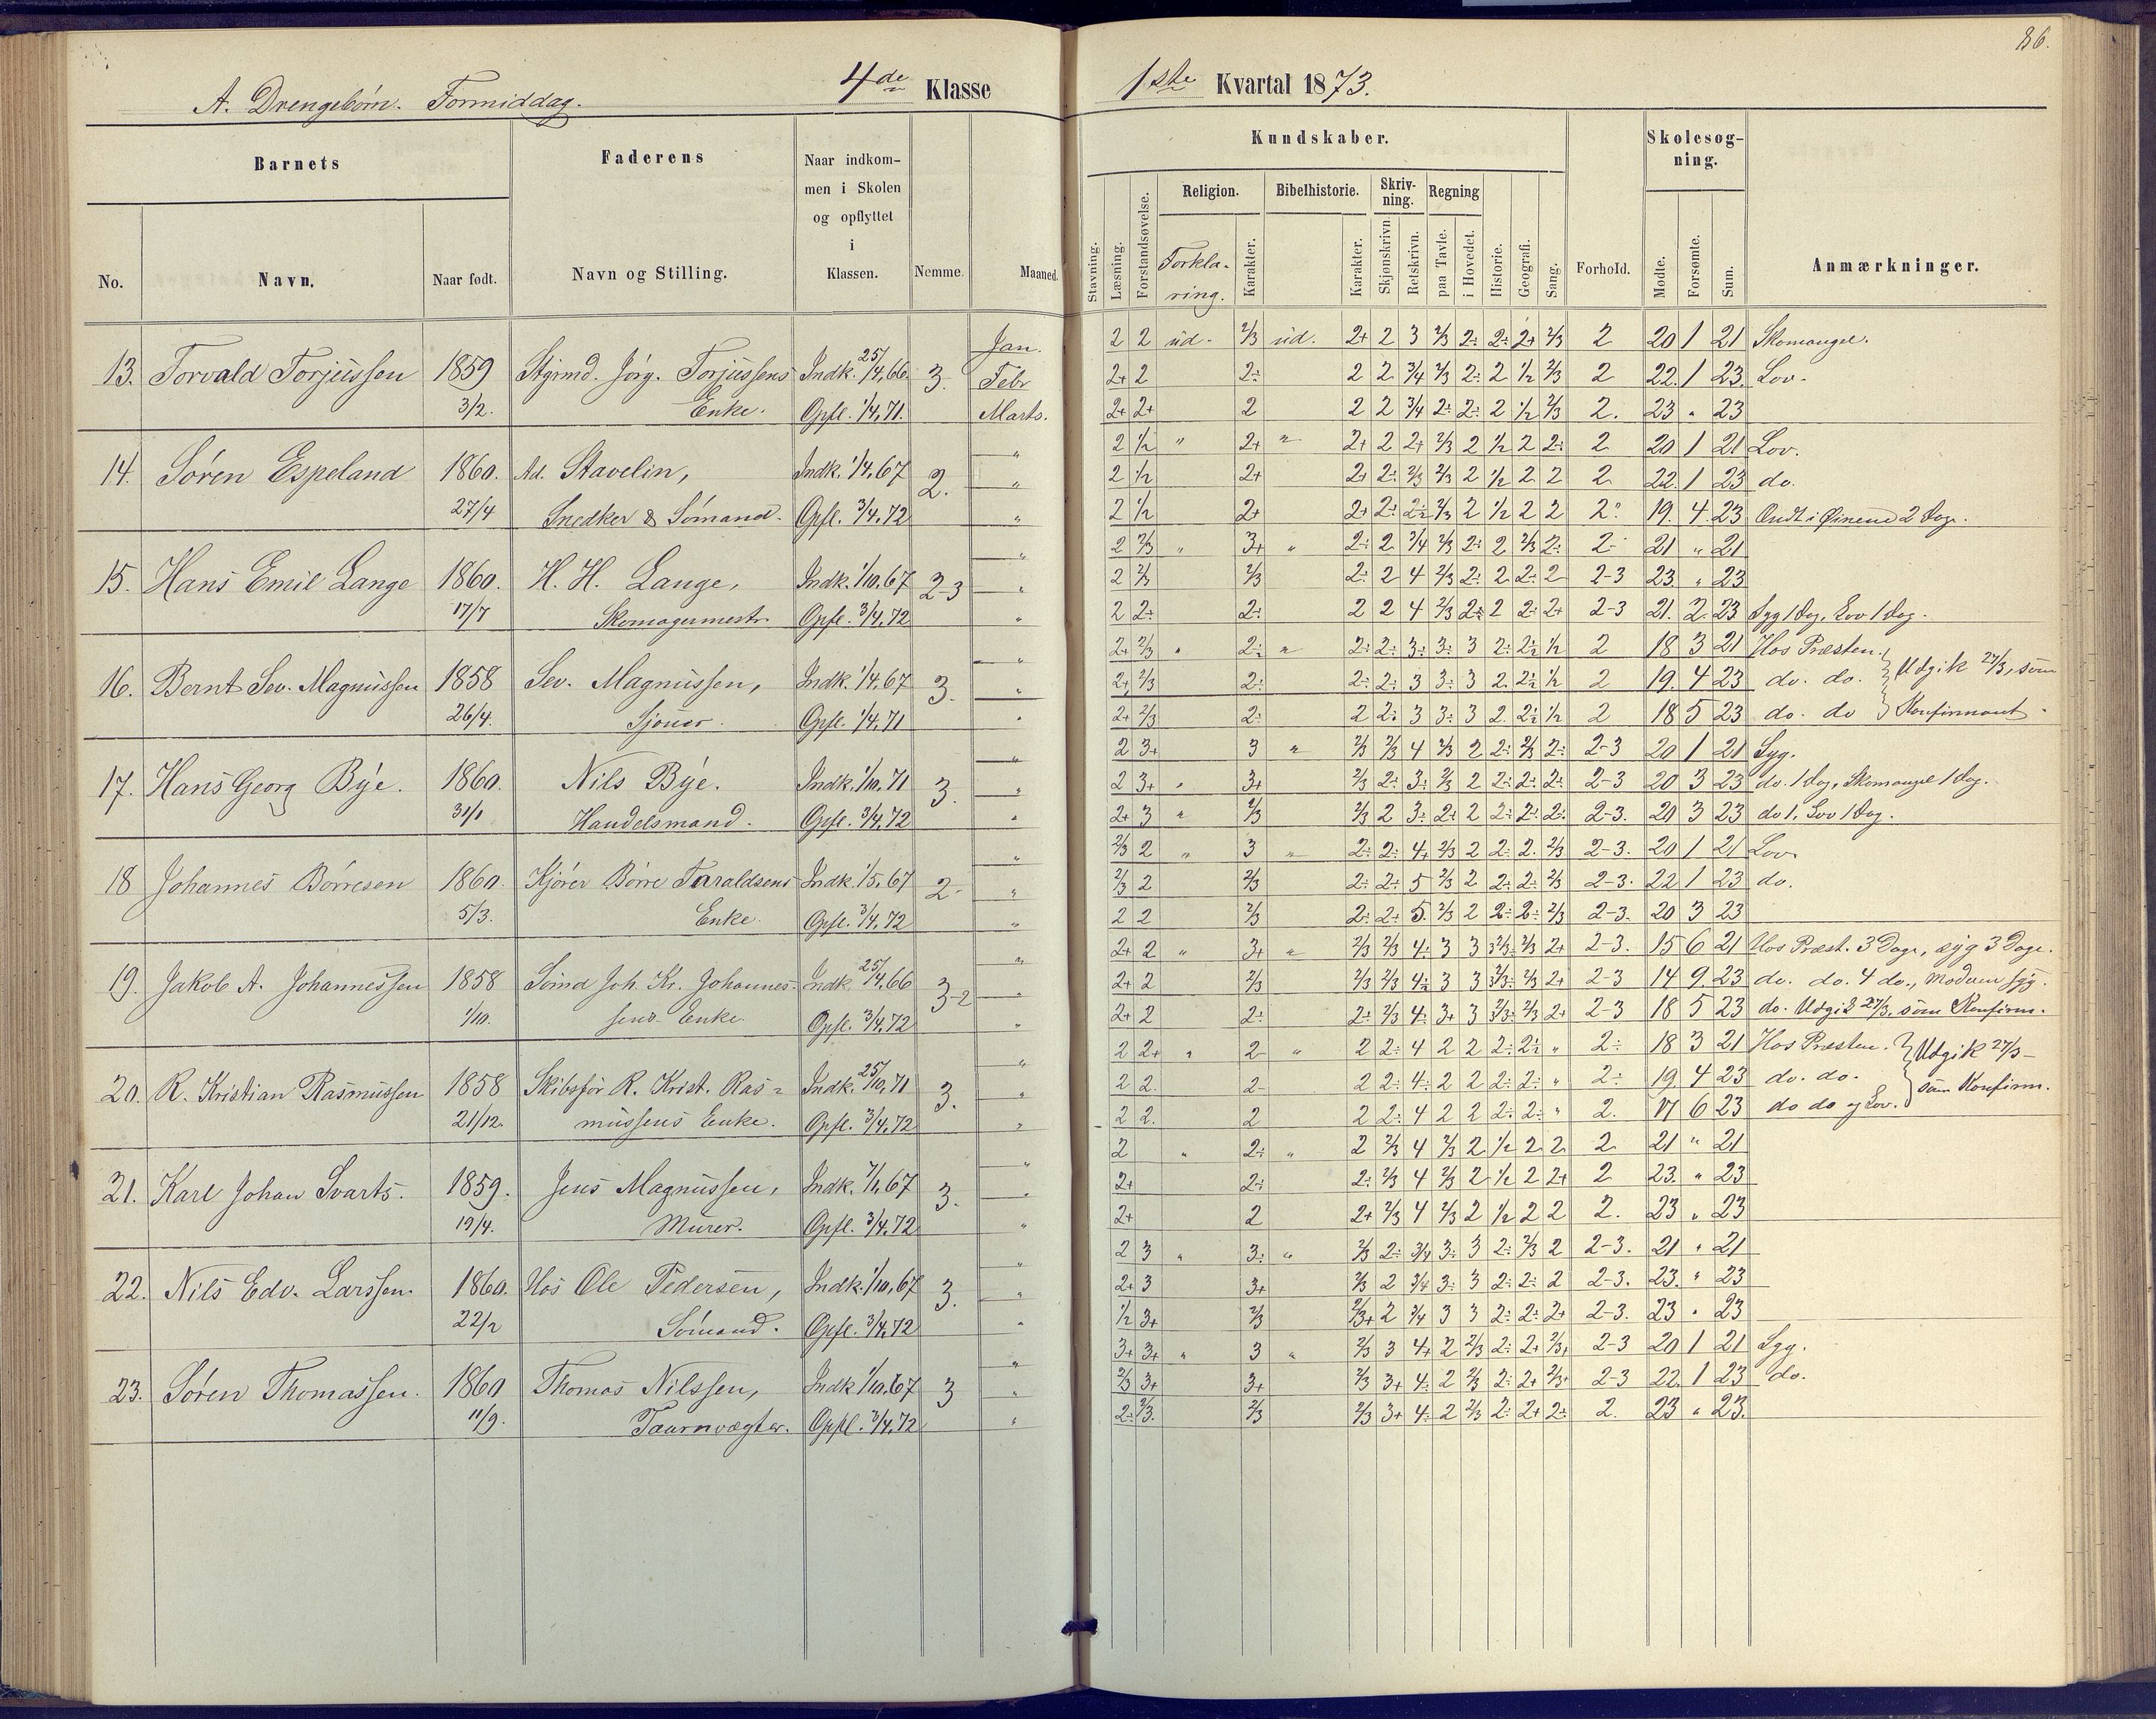 86.
A. Drengebørn. Formiddag. 4de Klasse 1ste Kvartal 1873.
Barnets Faderens Naar indkom- men i Skolen og opflyttet i Klassen. Nemme. Maaned.
No. Navn. Naar født. Navn og Stilling.
Kundskaber. Skolesøg- ning.
Stavning. Læsning. Forstandsøvelse. Religion. Forkla- ring. Karakter. Bibelhistorie. Karakter. Skriv- ning. Skjønskrivn. Retskrivn. Regning paa Tavle. i Hovedet. Historie. Geografi. Sang. Forhold. Mødte. Forsømte. Sum. Anmærkninger.
13. Torvald Torjussen 1859 3/2. Stgrmd. Jørg. Torjussens Enke. Indk. 25/4, 66 Opfl. 1/4, 71. 3.
Jan. 2 2 ud. 2/3 ud. 2+ 2 3 2/3 2÷ 2÷ 2+ 2/3 2 20 1 21 Skomangel.
Febr 2+ 2 2÷ 2 2 3/4 2/3 2÷ 2 1/2 2/3 2 22. 1 23. Lov.
Marts. 2+ 2+ 2 2 2 3/4 2÷ 2÷ 2 1/2 2/3 2. 23 " 23
14. Søren Espeland 1860. 27/4 Ad. Stavelin, Snedker & Sømand. Indk. 1/4, 67 Opfl. 3/4, 72 2.
" 2 1/2 " 2+ " 2+ 2 2+ 2/3 2 1/2 2 2÷ 2 20 1 21 Lov.
" 2 1/2 2+ 2+ 2÷ 2/3 2/3 2 1/2 2 2 2 22. 1 23 do.
" 2 1/2 2+ 2+ 2÷ 2÷ 2/3 2 1/2 2 2 2 19. 4. 23 Ondt i Øinene 2 Dage.
15. Hans Emil Lange 1860. 17/7 H. H. Lange, Skomagermestr. Indk. 1/10, 67 Opfl. 3/4, 72 2-3
" 2 2/3 " 3+ " 2÷ 2 3/4 2/3 2÷ 2 2/3 2÷ 2÷ 21 " 21
" 2 2/3 2/3 2÷ 2 4 2/3 2÷ 2 2÷ 2 2-3 23. " 23
" 2 2÷ 2÷ 2 2 4 2/3 2÷ 2 2÷ 2+ 2-3 21. 2. 23 Syg 1 Dag, Lov 1 Dag.
16. Bernt Sev. Magnussen 1858 26/4. Sev. Magnussen, Sjouer. Indk. 1/4, 67 Opfl. 1/4, 71 3.
" 2+ 2/3 " 2÷ " 2÷ 2÷ 3÷ 3÷ 3 2÷ 2÷ 1/2 2 18 3 21 Hos Præsten.
" 2+ 2/3 2÷ 2÷ 2÷ 3 3÷ 3 2. 2÷ 1/2 2 19. 4 23 do. do. Udgik 27/3, som
" 2+ 2/3 2÷ 2 2÷ 3 3÷ 3 2. 2÷ 1/2 2 18 5 23 do. do Konfirmant.
17. Hans Georg Bye. 1860. 31/1 Nils Bye. Handelsmand. Indk. 1/10, 71 Opfl. 3/4, 72 3.
" 2 3+ 3 " 2/3 2/3 4 2/3 2 2÷ 2/3 2÷ 2-3 20 1 21 Syg.
" 2 3+ " 3+ 2/3 2÷ 3÷ 2/3 2 2÷ 2÷ 2÷ 2-3 20 3 23 do. 1 Dag, Skomangel 1 Dag.
" 2+ 3 " 2/3 2/3 2 3÷ 2÷ 2 2÷ 2÷ 2÷ 2-3. 20 3 23 do 1, Lov 1 Dag.
18 Johannes Børresen 1860 5/3. Kjører Børre Taraldsens Enke. Indk. 1/5, 67 Opfl. 3/4, 72 2÷
" 2/3 2 " 3 " 2÷ 2÷ 4+ 2/3 2 2÷ 2. 2/3 2-3. 20 1 21 Lov
" 2/3 2 2/3 2÷ 2÷ 5 2/3 2 2÷ 2÷ 2/3 2-3. 22 1 23 do.
" 2 2 2/3 2÷ 2÷ 5. 2/3 2 2÷ 2÷ 2/3 2-3. 20 3 23
19. Jakob A. Johannessen 1858 1/10. Sømd Joh. Kr. Johannes- sens Enke. Indk. 25/4, 66 Opfl. 3/4, 72 3-2
" 2+ 2 " 3+ " 2/3 2/3 4÷ 3 3 2/3÷ 2/3 2+ 2-3. 15 6 21 Hos Præst. 3 Dage, syg 3 Dage.
" 2+ 2 2/3 2/3 2/3 4÷ 3 3 2/3÷ 2/3 2+ 2-3 14 9. 23 do. do. 4 do., Moderen syg.
" 2+ 2 2÷ 2÷ 2/3 4÷ 3+ 3 2/3÷ 2/3 2+ 2-3 18 5 23 do. Udgik 27/3, som Konfirm.
20. R. Kristian Rasmussen 1858 21/12. Skibsfør R. Krist. Ras= mussens Enke. Indk. 25/10, 71 Opfl. 3/4, 72 3.
" 2 2+ " 2÷ " 2 2÷ 4 2 2 2÷ 2÷ " 2÷ 18 3 21 Hos Præsten. Udgik 27/3
" 2 2. 2÷ 2 2÷ 4÷ 2 2 2÷ 2÷ " 2÷ 19 4 23 do. do. som Konfirm.
" 2 2. 2 2 2÷ 4 2 2 2÷ 2÷ " 2. 17 6 23 do do og Lov.
21. Karl Johan Svarts. 1859. 19/4. Jens Magnussen, Murer. Indk. 7/1, 67 Opfl. 3/4, 72 3.
" 2 " 2÷ " 2 2/3 4 2/3 2 1/2 2 2 2 21 " 21
" 2+ 2÷ 2÷ 2/3 4 2/3 2 1/2 2 2+ 2 23. " 23
" 2+ 2 2+ 2/3 4 2/3 2 1/2 2 2 2. 23 " 23
22. Nils Edv. Larssen. 1860. 22/2 Hos Ole Pedersen, Sømand. Indk. 1/10, 67 Opfl. 3/4, 72 3.
" 2 3 " 3÷ " 2/3 2÷ 3/4 3÷ 3 2÷ 2/3 2 2-3. 21 " 21
" 2÷ 3 3+ 2/3 2 3/4 3÷ 3 2÷ 2÷ 2 2-3. 23. " 23
" 1/2 3+ 2/3 2/3+ 2 3/4 3 3 2÷ 2÷ 2+ 2-3. 23 " 23
23. Søren Thomassen. 1860 11/9. Thomas Nilssen, Taarnvægter. Indk. 1/10, 67 Opfl. 3/4, 72 3
" 3+ 3+ " 3 " 2/3 3 4+ 2 2/3 2÷ 2+ 2/3+ 2-3 20 1 21 Syg.
" 2/3 3+ 3+ 2/3 3+ 4÷ 2 2/3 2÷ 2+ 2/3+ 2-3 22. 1 23 do.
" 2÷ 2/3. 2/3 2/3 3+ 4÷ 2 2/3 2÷ 2+ 2÷ 2. 23 " 23.